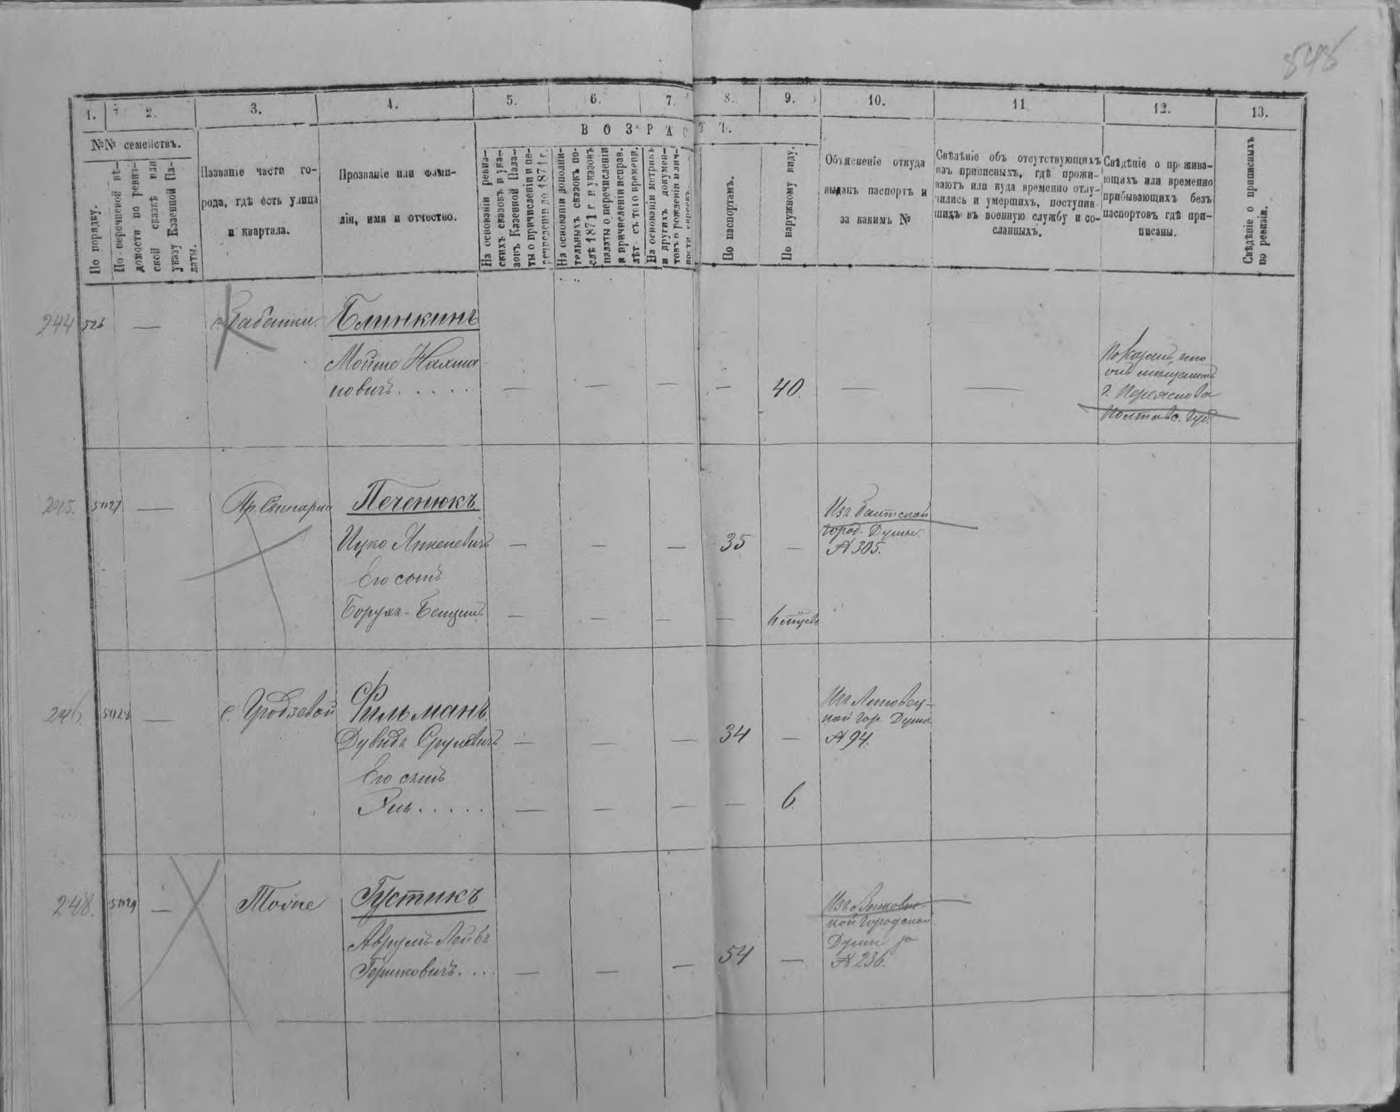 548
1.
2.
3.
4.
5.
6.
7.
8.
9.
10.
11.
12.
13.
№№ семействъ.
По порядку.
По перечневой вѣ-
домости по ревиз-
ской сказкѣ или
указу Казенной Па-
латы.
Названіе части го-
рода, гдѣ есть улица
и квартала.
Прозваніе или фами-
лія, имя и отчество.
ВОЗРАСТЪ.
На основаніи ревиз-
скихъ сказокъ и ука-
зовъ Казенной Пала-
ты о причисленіи и пе-
речисленіи до 1871 г.
На основаніи дополни-
тельныхъ сказокъ по-
слѣ 1871 г. и указовъ
палаты о перечисленіи
и причисленіи исправ.
лѣт. съ того времени.
На основаніи метрикъ
и другихъ докумен-
товъ о рожденіи и лич-
По паспортамъ.
По наружному виду.
Объясненіе откуда
выданъ паспортъ и
за какимъ №
Свѣдѣніе объ отсутствующихъ
изъ приписныхъ, гдѣ прожи-
ваютъ или куда временно отлу-
чились и умершихъ, поступив-
шихъ въ военную службу и со-
сланныхъ.
Свѣдѣніе о прожива-
ющихъ или временно
прибывающихъ безъ
паспортовъ гдѣ при-
писаны.
Свѣдѣніе о приписныхъ
по ревизіи.
244
526
—
Блинкинъ
Мойше Нахма
новичъ . . . . .
— — — — 40. — —
Показалъ, что
онъ
г. Переяслова
Полтавс. губ.
245.
5127
—
Печенюкъ
Ицко Янкелевичъ
— — — 35 —
Изъ Балтской
Город. Думы
№ 305.
Его сынъ
Борухъ-Бенціонъ
— — — — 6 мѣсяц.
246.
5128
—
Фильманъ
Дувидъ Срулевичъ
— — — 34 —
Изъ Липовец-
кой Гор. Думы
№ 94.
Его сынъ
. . . . .
— — — — 6.
248.
5129
—
Тоже
Густикъ
Аврумъ Лейбъ
Гершковичъ. . . .
— — — 54 —
кой Городской
Думы за
№ 236.